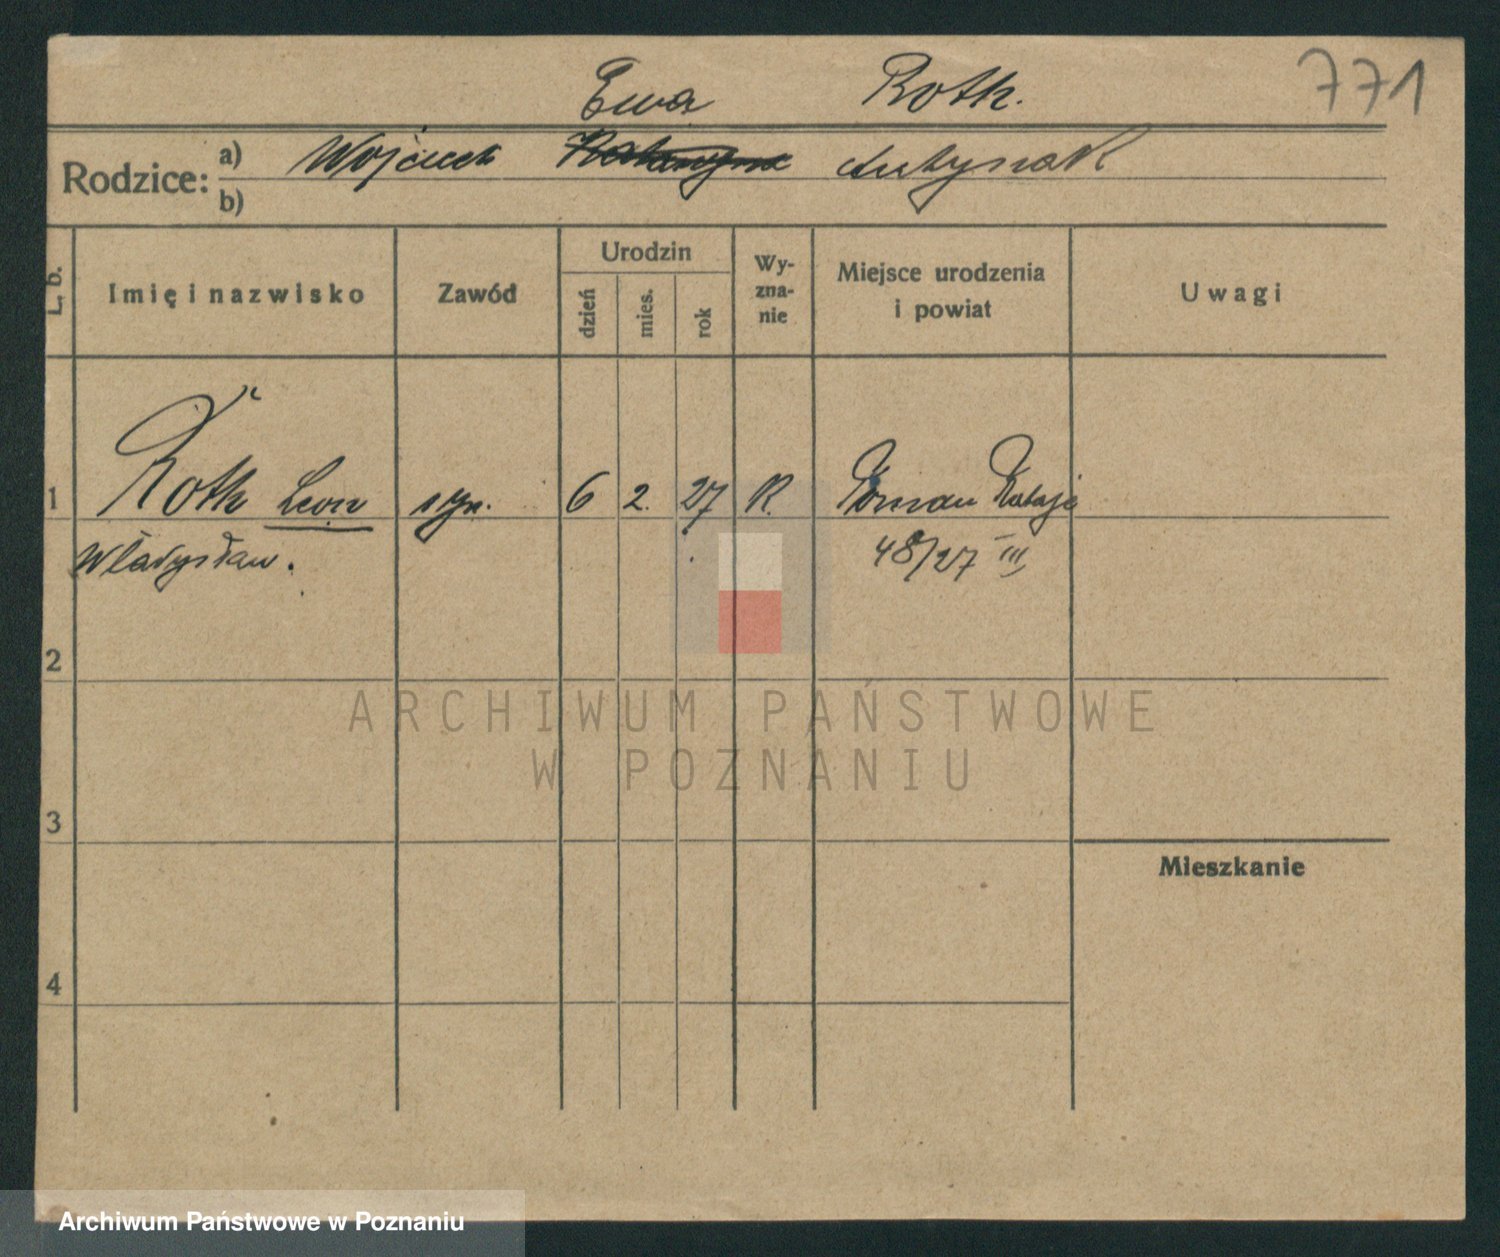 771
Ewa Roth.
Rodzice:
a) Wojciech Katarzyna Antyniak
b)
L. b.
Imię i nazwisko
Zawód
Urodzin
dzień
mies.
rok
Wy-
zna-
nie
Miejsce urodzenia
i powiat
Uwagi
1 Roth Leon syn. 6 2. 27 R. Poznań Rataje
Władysław. 48/27 III
2
3
4
Mieszkanie
ARCHIWUM PAŃSTWOWE
W POZNANIU
Archiwum Państwowe w Poznaniu